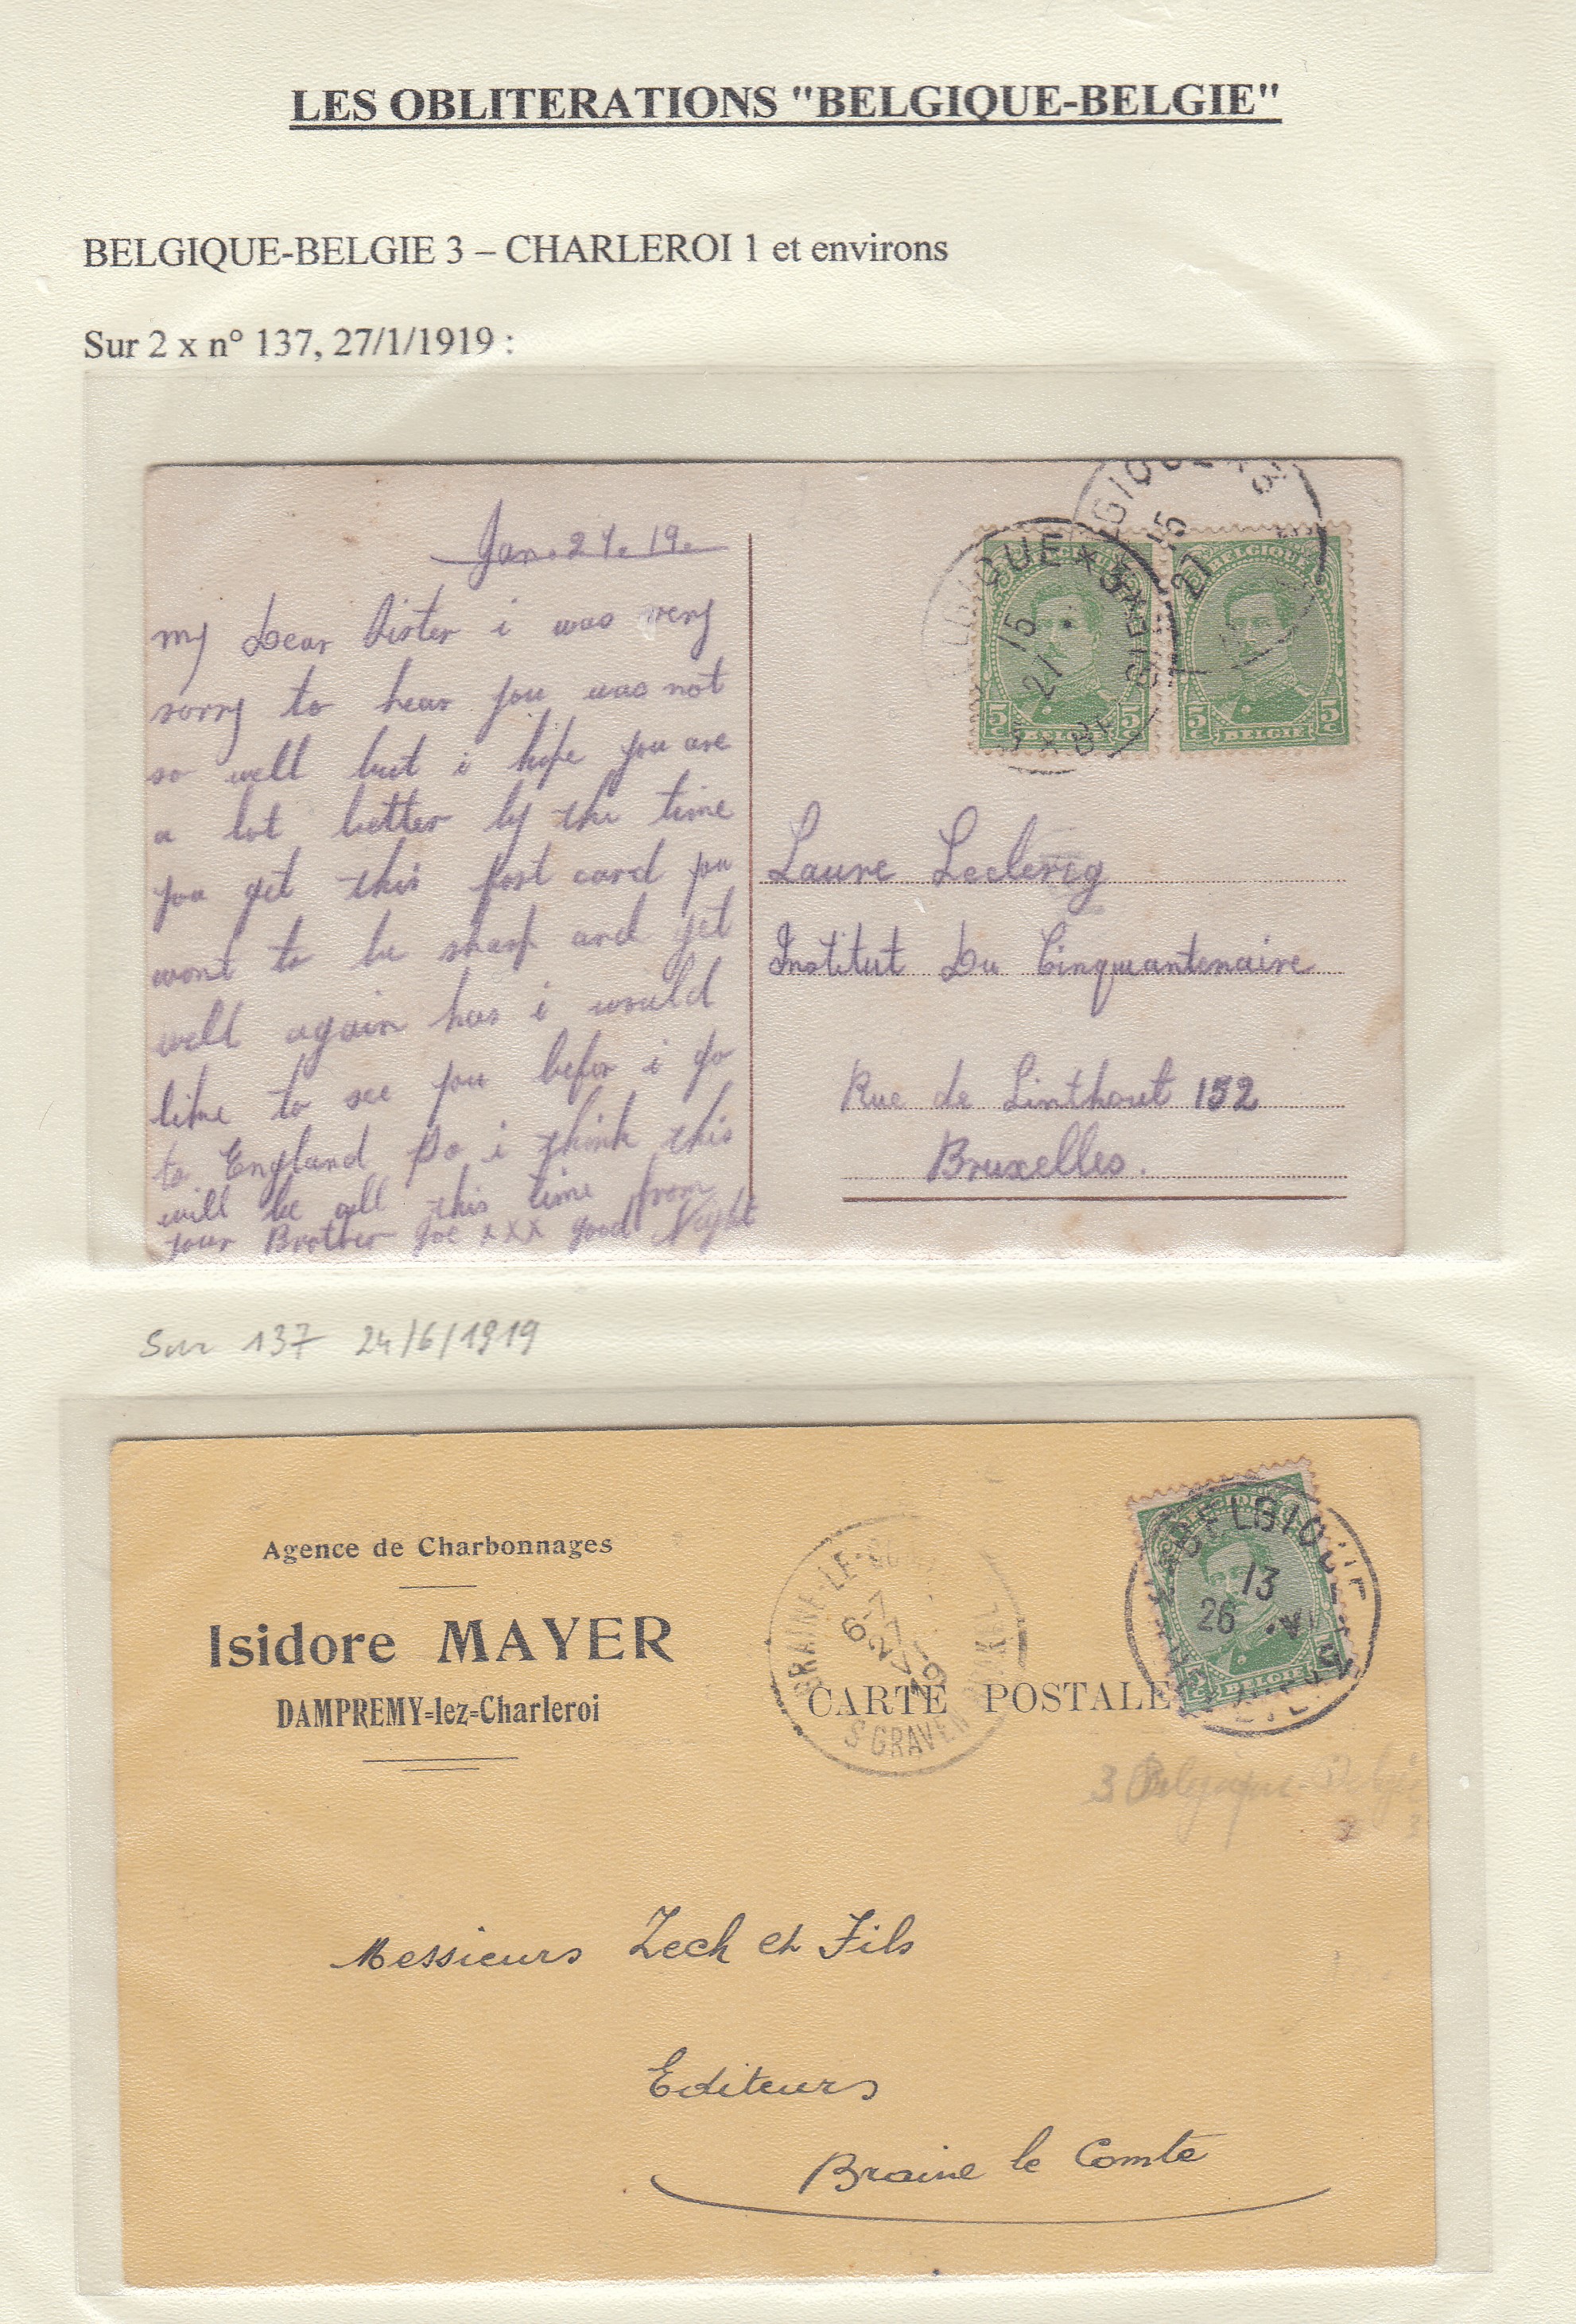 LES OBLITERATIONS "BELGIQUE-BELGIE"
BELGIQUE-BELGIE 3 – CHARLEROI 1 et environs
Sur 2 x n° 137, 27/1/1919 :
Jan. 24. 19.
my Dear Sister i was very
sorry to hear you was not
so well but i hope you are
a lot better by the time
you get this post card you
wont to be sharp and get
well again has i would
like to see you befor i go
to England So i think this
will be all this time from
your Brother Joe xxx good Night
BELGIQUE * 3
15
27
GIQUE * 3
15
27
BELGIQUE
5 5
BELGIE
BELGIQUE
5 5
BELGIE
Laure Leclercq
Institut Du Cinquantenaire
Rue de Linthout 152
Bruxelles.
Sur 137 24/6/1919
Agence de Charbonnages
Isidore MAYER
DAMPREMY=lez=Charleroi
BRAINE-LE-
6-7
27
VI
19
S GRAVEN
CARTE POSTALE
BELGIQUE
13
26 VI
BELGIE
3 Belgique-Belgie
3 3
Messieurs Zech et Fils
Editeurs
Braine le Comte